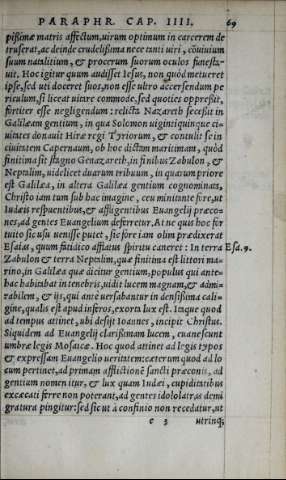 PARAPHR. CAP. IIII. 69
pijßimæ matris affectum, uirum optimum in carcerem de
truserat, ac deinde crudelißima nece tanti uiri, cōuiuium
suum natalitium, & procerum suorum oculos funesta-
uit. Hoc igitur quum audisset Iesus, non quòd metueret
ipse, sed uti doceret suos, non esse ultro accersendum pe
riculum, si liceat uitare commode, sed quoties oppreßit,
fortiter esse negligendum: relicta Nazareth secessit in
Galilæam gentium, in qua Solomon uiginti quinque ci-
uitates donauit Hiræ regi Tyriorum, & contulit se in
ciuitatem Capernaum, ob hoc dictam maritimam, quòd
finitima sit stagno Genazareth, in finibus Zabulon, &
Neptalim, uidelicet duarum tribuum, in quarum priore
est Galilæa, in altera Galilæa gentium cognominata,
Christo iam tum sub hac imagine, ceu minitante fore, ut
Iudæis respuentibus, & affligentibus Euangelij præco-
nes, ad gentes Euangelium deferretur. At ne quis hoc for
tuito sic usu uenisse putet, sic fore iam olim prædixerat
Esaias, quum fatidico afflatus spiritu caneret: In terra Esa.9.
Zabulon & terra Neptalim, quæ finitima est littori ma-
rino, in Galilæa quæ dicitur gentium, populus qui ante-
hac habitabat in tenebris, uidit lucem magnam, & admi-
rabilem, & ijs, qui antè uersabantur in densißima cali-
gine, qualis est apud inferos, exorta lux est. Itaque quod
ad tempus attinet, ubi desijt Ioannes, incipit Christus.
Siquidem ad Euangelij clarißimam lucem, euanescunt
umbræ legis Mosaicæ. Hoc quod attinet ad legis typos
& expressam Euangelio ueritatem: cæterum quod ad lo
cum pertinet, ad primam afflictionē sancti præconis, ad
gentium nomen itur, & lux quam Iudæi, cupiditatibus
excæcati ferre non poterant, ad gentes idololatras demi
gratura pingitur: sed sic ut à confinio non recedatur, ut
c 3 utrinq;